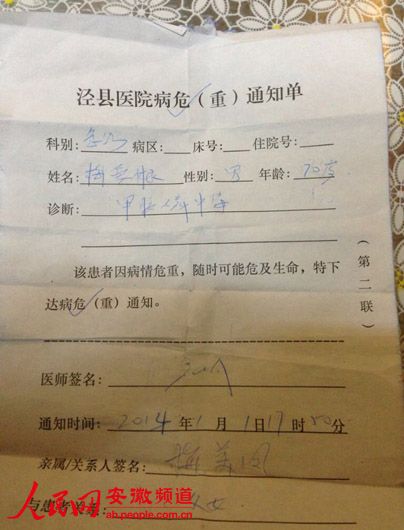 泾县医院病危（重）通知单
科别: 急诊 病区: 床号: 住院号:
姓名: 性别: 男 年龄: 70岁
诊断: 甲胺磷中毒
该患者因病情危重，随时可能危及生命，特下
达病危（重）通知。
（第二联）
医师签名:
通知时间: 2014 年 1 月 1 日 17 时 50 分
亲属/关系人签名: 梅
与患者关系: 父女
人民网 安徽频道
ah.people.com.cn